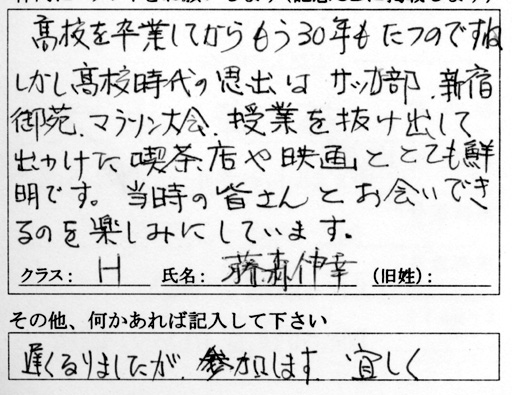 高校を卒業してからもう30年もたつのですね
しかし高校時代の思出は サッカ部、新宿
御苑、マラソン大会、授業を抜け出して
出かけた 喫茶店や映画ととても鮮
明です。当時の皆さんとお会いでき
るのを楽しみにしています。
クラス: H 氏名: 藤森伸幸 (旧姓):
その他、何かあれば記入して下さい
遅くなりましたが、参加します 宜しく